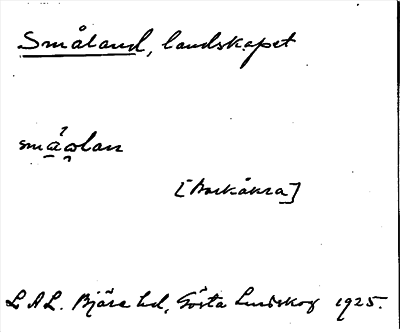 Småland, landskapet
småωlan
[Barkåkra]
L A L. Bjäre hd, Gösta Lundskog 1925.